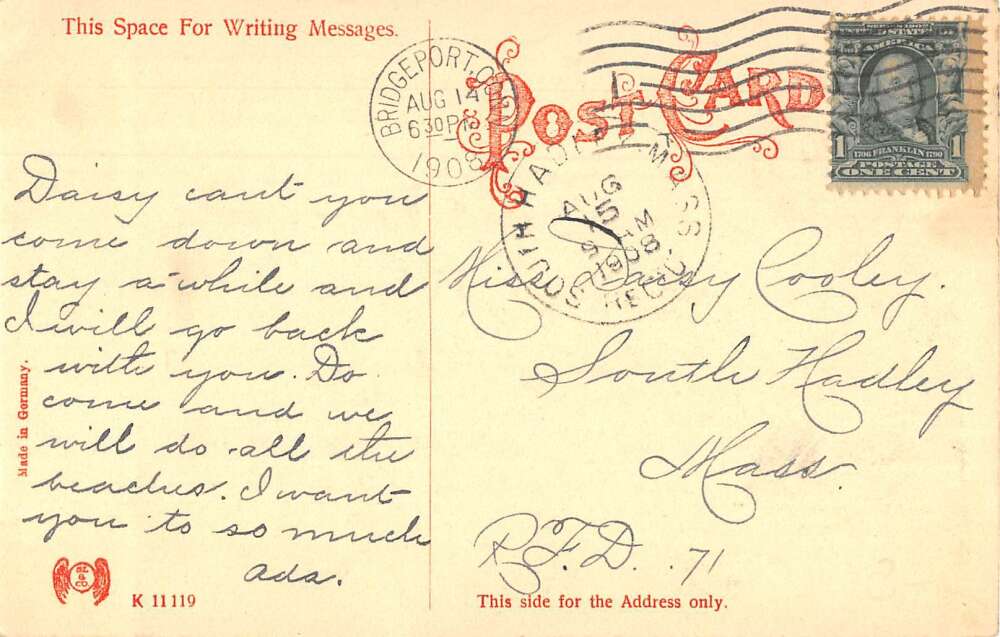 This Space For Writing Messages.
POST CARD
BRIDGEPORT, CO
AUG 14
630 PM
1908
SOUTH HADLEY MASS
AUG
15
AM
1908
REC'D
SERIES 1902
UNITED STATES OF
AMERICA
1 1706 FRANKLIN 1790 1
POSTAGE
ONE CENT
Daisy cant you
come down and
stay a-while and
I will go back
with you. Do
come and we
will do all the
beaches. I want
you to so much
Ada.
Miss Daisy Cooley.
South Hadley
Mass.
R.F.D. 71
Made in Germany.
& CO.
K 11119
This side for the Address only.